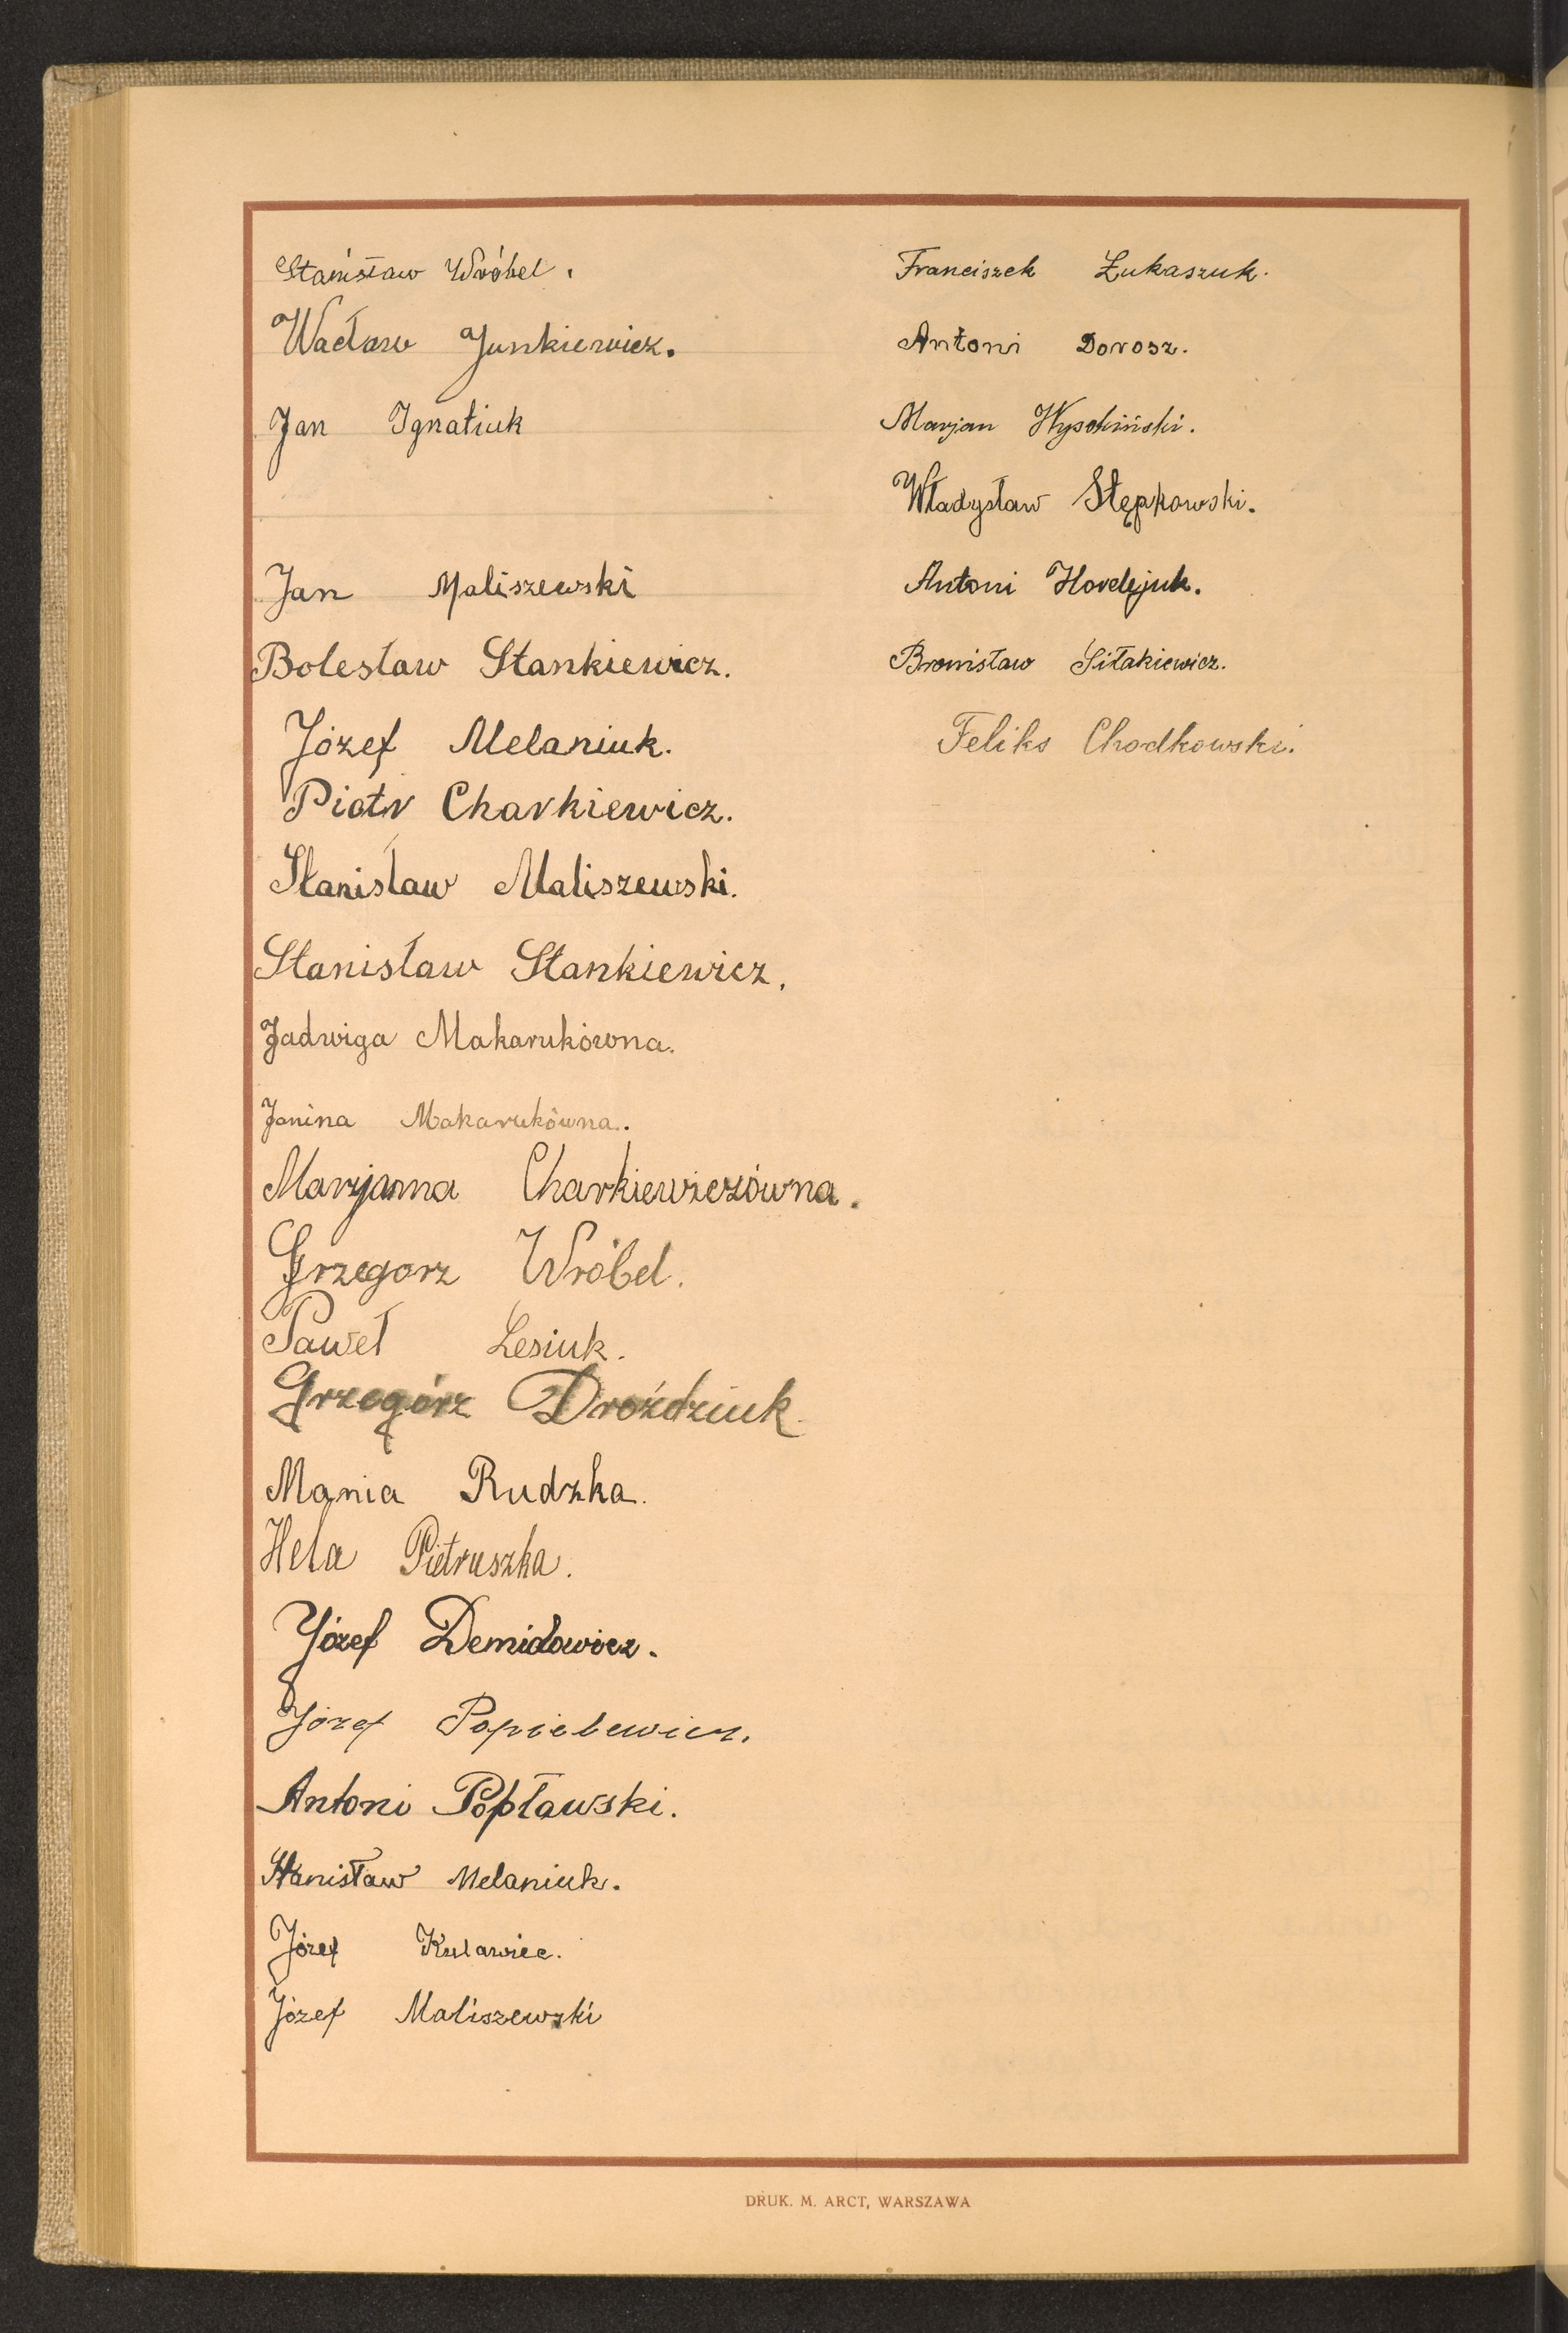 Stanisław Wróbel.
Wacław Junkiewicz.
Jan Ignatiuk
Jan Maliszewski
Bolesław Stankiewicz.
Józef Melaniuk.
Piotr Charkiewicz.
Stanisław Maliszewski.
Stanisław Stankiewicz.
Jadwiga Makarukówna.
Janina Makarukówna.
Marjanna Charkiewiczówna.
Grzegorz Wróbel.
Paweł Lesiuk.
Grzegórz Droździuk.
Mania Rudzka.
Hela Pietruszka.
Józef Demidowicz.
Józef Popielewicz.
Antoni Popławski.
Stanisław Melaniuk.
Józef Kulawiec.
Józef Maliszewski
Franciszek Łukaszuk.
Antoni Dorosz.
Marjan Wysokiński.
Władysław Stępkowski.
Antoni Hordejuk.
Bronisław Siłakiewicz.
Feliks Chodkowski.
DRUK. M. ARCT, WARSZAWA